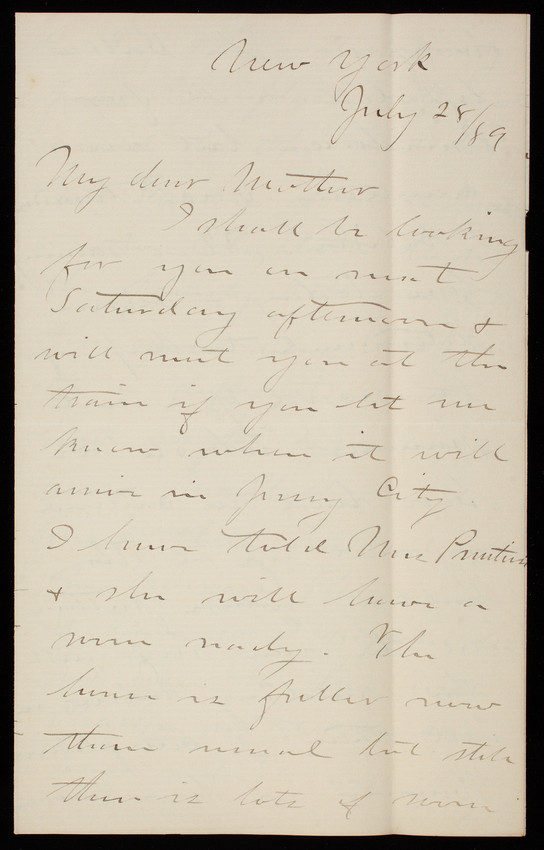 New York
July 28/89
My dear Mother
I shall be looking
for you on next
Saturday afternoon &
will meet you at the
train if you let me
know when it will
arrive in Jersey City.
I have told Mrs
& she will have a
room ready. The
house is fuller now
than usual but still
there is lots of room